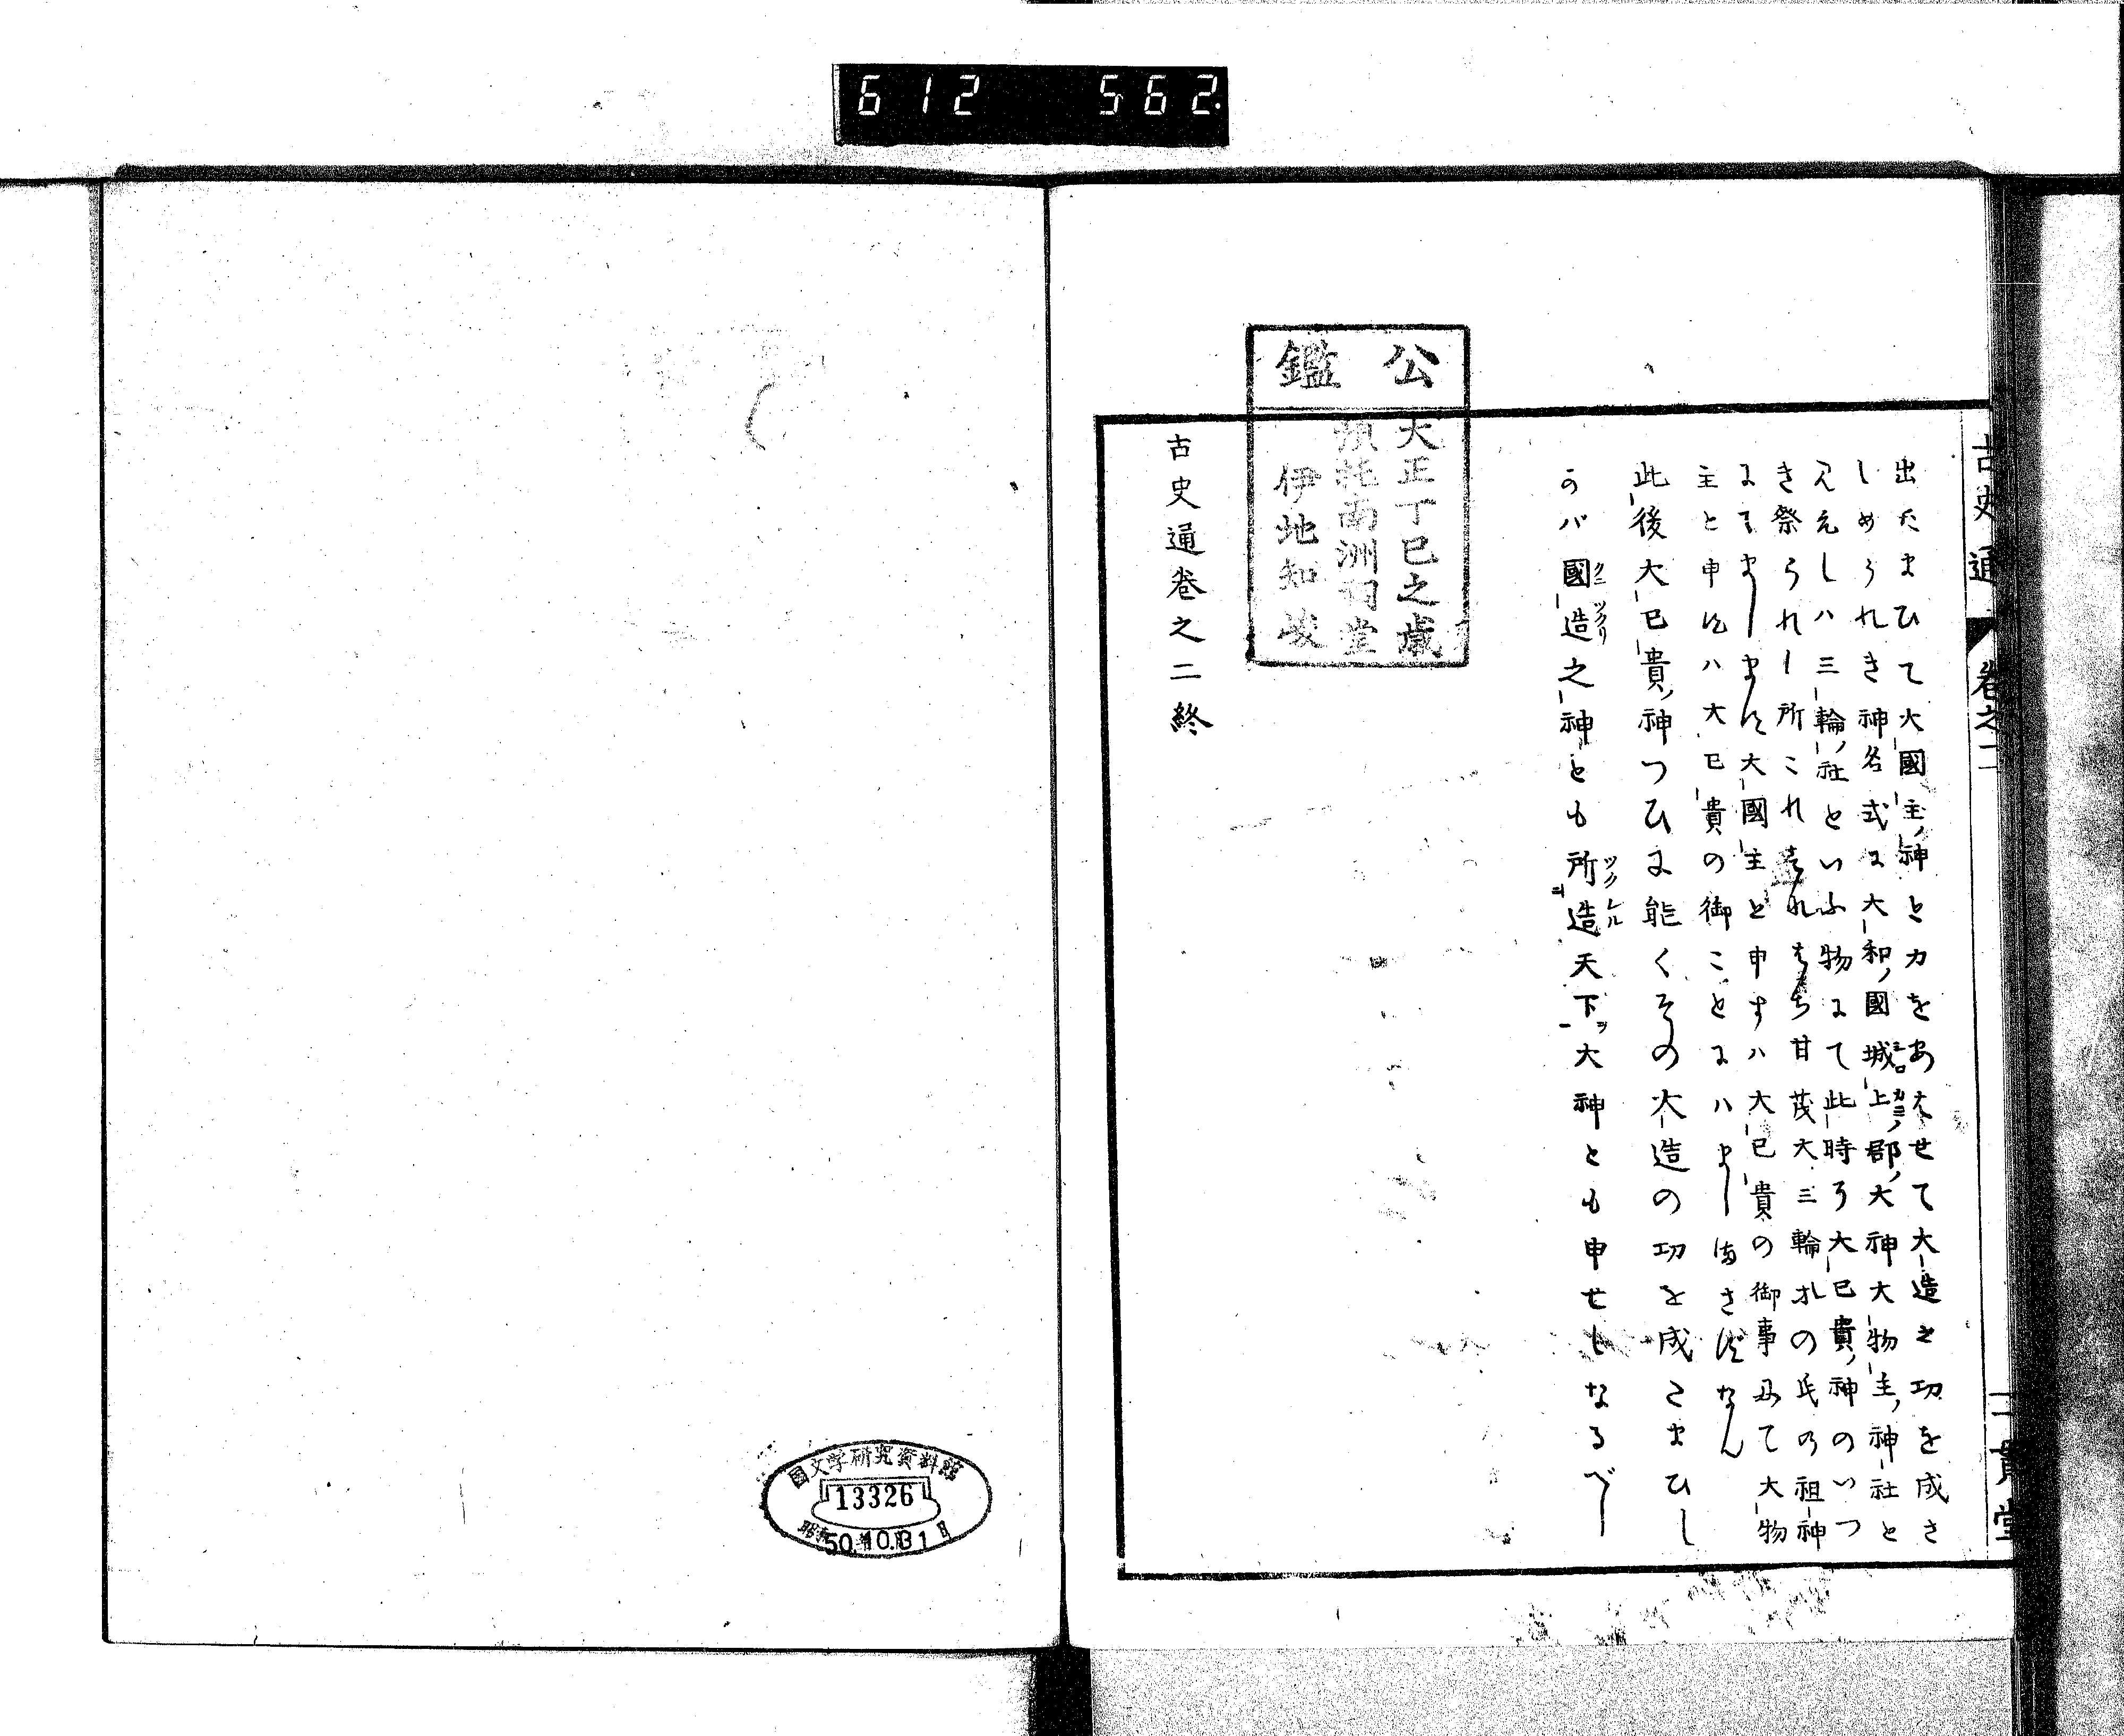 612 562
古史通 卷之二
出たまひて大國主ノ神と力をあハせて大造之功を成さ
しめられき神名式に大和ノ國城シロ上カミノ郡ノ大神大物主ノ神社と
見えしハ三輪ノ社といふ物にて此時ノ大己貴ノ神のいつ
き祭られし所これ
ち甘茂大三輪
の氏の祖神
にてましますに大國主と申すハ大己貴の御事にて大物
主と申せハ大己貴の御ことにハましまさずなん
此後大己貴ノ神つひに能くその大造の功を成したまひし
かバ國クニ造ツクリ之神とも所造ツクレル天下ヲ大神とも申せしなるべし
公鑑
大正丁巳之歲
南洲
堂
伊地知
古史通卷之二終
國文学研究資料館
13326
昭和50.10.31日